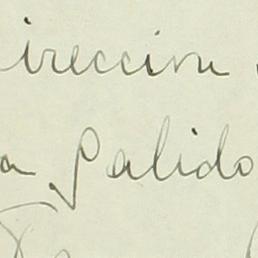 irección
a Salido